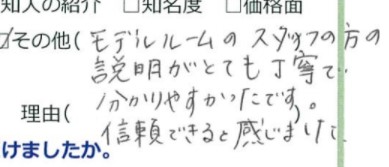 知人の紹介 □知名度 □価格面
☑その他(モデルルームのスタッフの方の
説明がとても丁寧で
理由( 分かりやすかったです)。
信頼できると感じまして
けましたか。